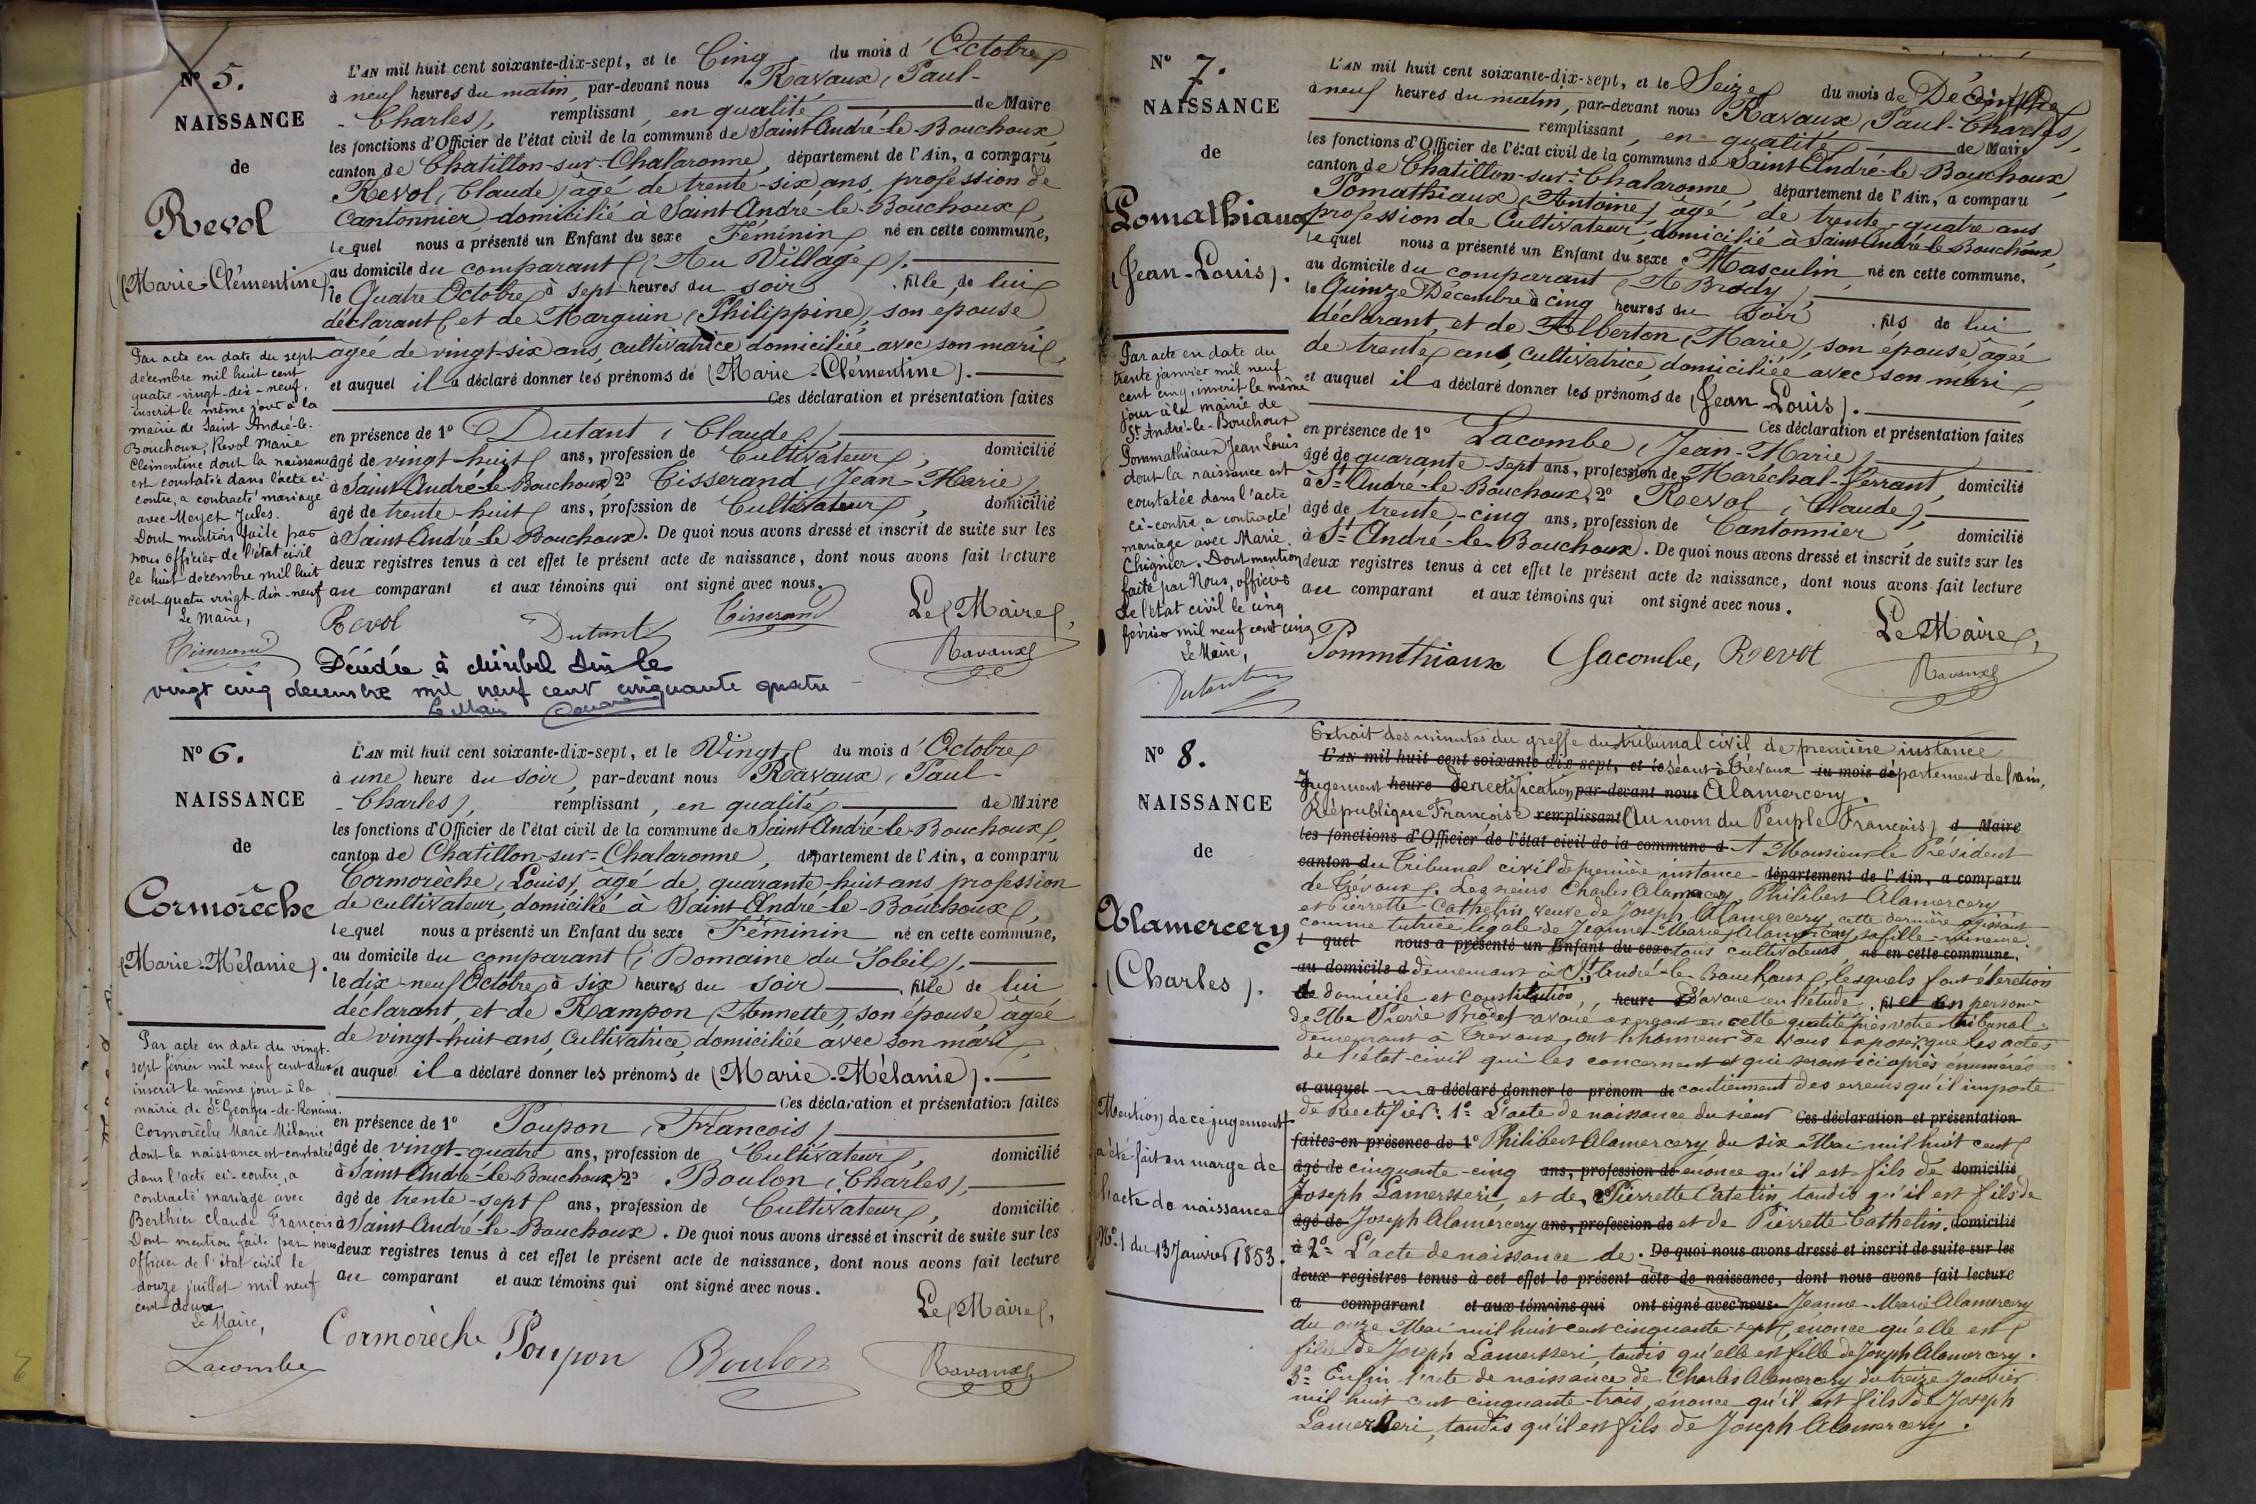 N° 5.
NAISSANCE
de
Revol
(Marie-Clémentine)
L'AN mil huit cent soixante-dix-sept, et le Cinq du mois d'Octobre
à neuf heures du matin, par-devant nous Ravaux, Paul-
-Charles), remplissant, en qualité de Maire
les fonctions d'Officier de l'état civil de la commune de Saint-André-le-Bouchoux
canton de Chatillon-sur-Chalaronne, département de l'Ain, a comparu
Revol, Claude, âgé de trente-six ans, profession de
Cantonnier domicilié à Saint-André-le-Bouchoux,
lequel nous a présenté un Enfant du sexe Féminin né en cette commune,
au domicile du comparant (Au Village).
le Quatre Octobre à sept heures du soir, fille de lui
déclarant, et de Marguin (Philippine), son épouse
agée de vingt-six ans, cultivatrice domiciliée avec son mari,
et auquel il a déclaré donner les prénoms de (Marie-Clémentine).
Ces déclaration et présentation faites
en présence de 1° Dutant, Claude),
âgé de vingt-huit ans, profession de Cultivateur, domicilié
à Saint-André-le-Bouchoux, 2° Tisserand, Jean-Marie
âgé de trente-huit ans, profession de Cultivateur, domicilié
à Saint-André-le-Bouchoux. De quoi nous avons dressé et inscrit de suite sur les
deux registres tenus à cet effet le présent acte de naissance, dont nous avons fait lecture
au comparant et aux témoins qui ont signé avec nous.
Revol Dutant Tisserand Le Maire,
Ravaux
Par acte en date du sept
décembre mil huit cent
quatre-vingt-dix-neuf,
inscrit le même jour à la
mairie de Saint André-le-
Bouchoux, Revol Marie
Clémentine dont la naissance
est constatée dans l'acte ci-
contre, a contracté mariage
avec Meyet Jules.
Dont mention faite par
nous officier de l'état civil
le huit décembre mil huit
cent quatre vingt-dix-neuf
Le Maire,
Tisserand
Décédée à Miribel Ain le
vingt cinq décembre mil neuf cent cinquante quatre
Le Maire
N° 6.
NAISSANCE
de
Cormorèche
(Marie-Mélanie).
L'AN mil huit cent soixante-dix-sept, et le Vingt du mois d'Octobre
à une heure du soir, par-devant nous Ravaux, Paul-
-Charles), remplissant, en qualité de Maire
les fonctions d'Officier de l'état civil de la commune de Saint-André-le-Bouchoux,
canton de Chatillon-sur-Chalaronne, département de l'Ain, a comparu
Cormorèche, Louis, âgé de quarante-huit ans, profession
de cultivateur, domicilié à Saint-André-le-Bouchoux,
lequel nous a présenté un Enfant du sexe Féminin né en cette commune,
au domicile du comparant (Domaine du Soleil),
le dix-neuf Octobre à six heures du soir, fille de lui
déclarant, et de Rampon (Annette), son épouse, âgée
de vingt-huit ans, Cultivatrice, domiciliée avec son mari,
et auquel il a déclaré donner les prénoms de (Marie-Mélanie).
Ces déclaration et présentation faites
en présence de 1° Poupon, François)
âgé de vingt-quatre ans, profession de Cultivateur, domicilié
à Saint-André-le-Bouchoux, 2° Boulon, Charles),
âgé de trente-sept ans, profession de Cultivateur, domicilié
à Saint-André-le-Bouchoux. De quoi nous avons dressé et inscrit de suite sur les
deux registres tenus à cet effet le présent acte de naissance, dont nous avons fait lecture
au comparant et aux témoins qui ont signé avec nous.
Le Maire,
Cormorèche Poupon Boulon Ravaux
Par acte en date du vingt-
sept février mil neuf cent deux
inscrit le même jour à la
mairie de St Georges-de-Reneins.
Cormorèche Marie Mélanie
dont la naissance est constatée
dans l'acte ci-contre, a
contracté mariage avec
Berthier Claude François
Dont mention faite par nous
officier de l'état civil le
douze juillet mil neuf
cent-deux
Le Maire,
Lacombe
N° 7.
NAISSANCE
de
Pomathiaux
(Jean-Louis).
L'AN mil huit cent soixante-dix-sept, et le Seize du mois de Décembre
à neuf heures du matin, par-devant nous Ravaux, Paul-Charles),
remplissant, en qualité de Maire
les fonctions d'Officier de l'état civil de la commune de Saint-André-le-Bouchoux
canton de Chatillon-sur-Chalaronne, département de l'Ain, a comparu
Pomathiaux (Antoine) âgé de trente-quatre ans
profession de Cultivateur, domicilié à Saint-André-le-Bouchoux,
lequel nous a présenté un Enfant du sexe Masculin né en cette commune,
au domicile du comparant (A Brody),
le Quinze Décembre à cinq heures du soir, fils de lui
déclarant, et de Alberton (Marie), son épouse âgée
de trente ans, cultivatrice, domiciliée avec son mari,
et auquel il a déclaré donner les prénoms de (Jean-Louis).
Ces déclaration et présentation faites
en présence de 1° Lacombe, Jean-Marie)
âgé de quarante-sept ans, profession de Maréchal-Ferrant, domicilié
à St-André-le-Bouchoux, 2° Revol, Claude),
âgé de trente-cinq ans, profession de Cantonnier, domicilié
à St-André-le-Bouchoux. De quoi nous avons dressé et inscrit de suite sur les
deux registres tenus à cet effet le présent acte de naissance, dont nous avons fait lecture
au comparant et aux témoins qui ont signé avec nous.
Le Maire,
Pommthiaux Lacombe, Revol Ravaux
Par acte en date du
trente janvier mil neuf
cent cinq, inscrit le même
jour à la mairie de
St André-le-Bouchoux
Pommathiaux Jean Louis
dont la naissance est
constatée dans l'acte
ci-contre, a contracté
mariage avec Marie
Chignier. Dont mention
faite par Nous, officier
de l'état civil le cinq
février mil neuf cent cinq
Le Maire,
N° 8.
NAISSANCE
de
Alamercery
(Charles).
Extrait des minutes du greffe du tribunal civil de première instance
L'AN mil huit cent soixante-dix-sept, et le séant à Trévoux du mois département de l'ain,
Jugement heure de rectification par-devant nous Alamercery.
République Française remplissant (Au nom du Peuple Français) d Maire
les fonctions d'Officier de l'état civil de la commune d A Monsieur le Président
canton du Tribunal civil de première instance département de l'Ain, a comparu
de Trévoux. Les sieurs Charles Alamercery, Philibert Alamercery
et Pierrette Cathelin, veuve de Joseph Alamercery, cette dernière agissant
comme tutrice légale de Jeanne-Marie Alamercery, sa fille mineure.
l quel nous a présenté un Enfant du sexe tous cultivateurs, né en cette commune,
au domicile d demeurant à St André-le-Bouchoux, lesquels font élection
de domicile et constitution, heure d'avoué en l'étude, fil et en personne
de Me Pierre Brodet avoué exerçant en cette qualité près votre tribunal
demeurant à Trevoux, ont l'honneur de vous exposer que les actes
de l'état-civil qui les concernent et qui seront ici après énumérés
et auquel a déclaré donner le prénom de contiennent des erreurs qu'il importe
de Rectifier: 1° L'acte de naissance du sieur Ces déclaration et présentation
faites en présence de 1° Philibert Alamercery du six Mai mil huit cent
âgé de cinquante-cinq ans, profession de énonce qu'il est fils de domicilié
Joseph Lamersseri, et de Pierrette Catelin, tandis qu'il est fils de
âgé de Joseph Alamercery ans, profession de et de Pierrette Cathelin. domicilié
à 2° L'acte de naissance de. De quoi nous avons dressé et inscrit de suite sur les
deux registres tenus à cet effet le présent acte de naissance, dont nous avons fait lecture
a comparant et aux témoins qui ont signé avec nous. Jeanne-Marie Alamercery
du onze Mai mil huit cent cinquante-sept, énonce qu'elle est
fille de Joseph Lamersseri, tandis qu'elle est fille de Joseph Alamercery.
3° Enfin l'acte de naissance de Charles Alamercery du treize Janvier
mil huit cent cinquante-trois, énonce qu'il est fils de Joseph
Lamersseri, tandis qu'il est fils de Joseph Alamercery.
Mention de ce jugement
a été fait en marge de
l'acte de naissance
N° 1 du 13 Janvier 1853.